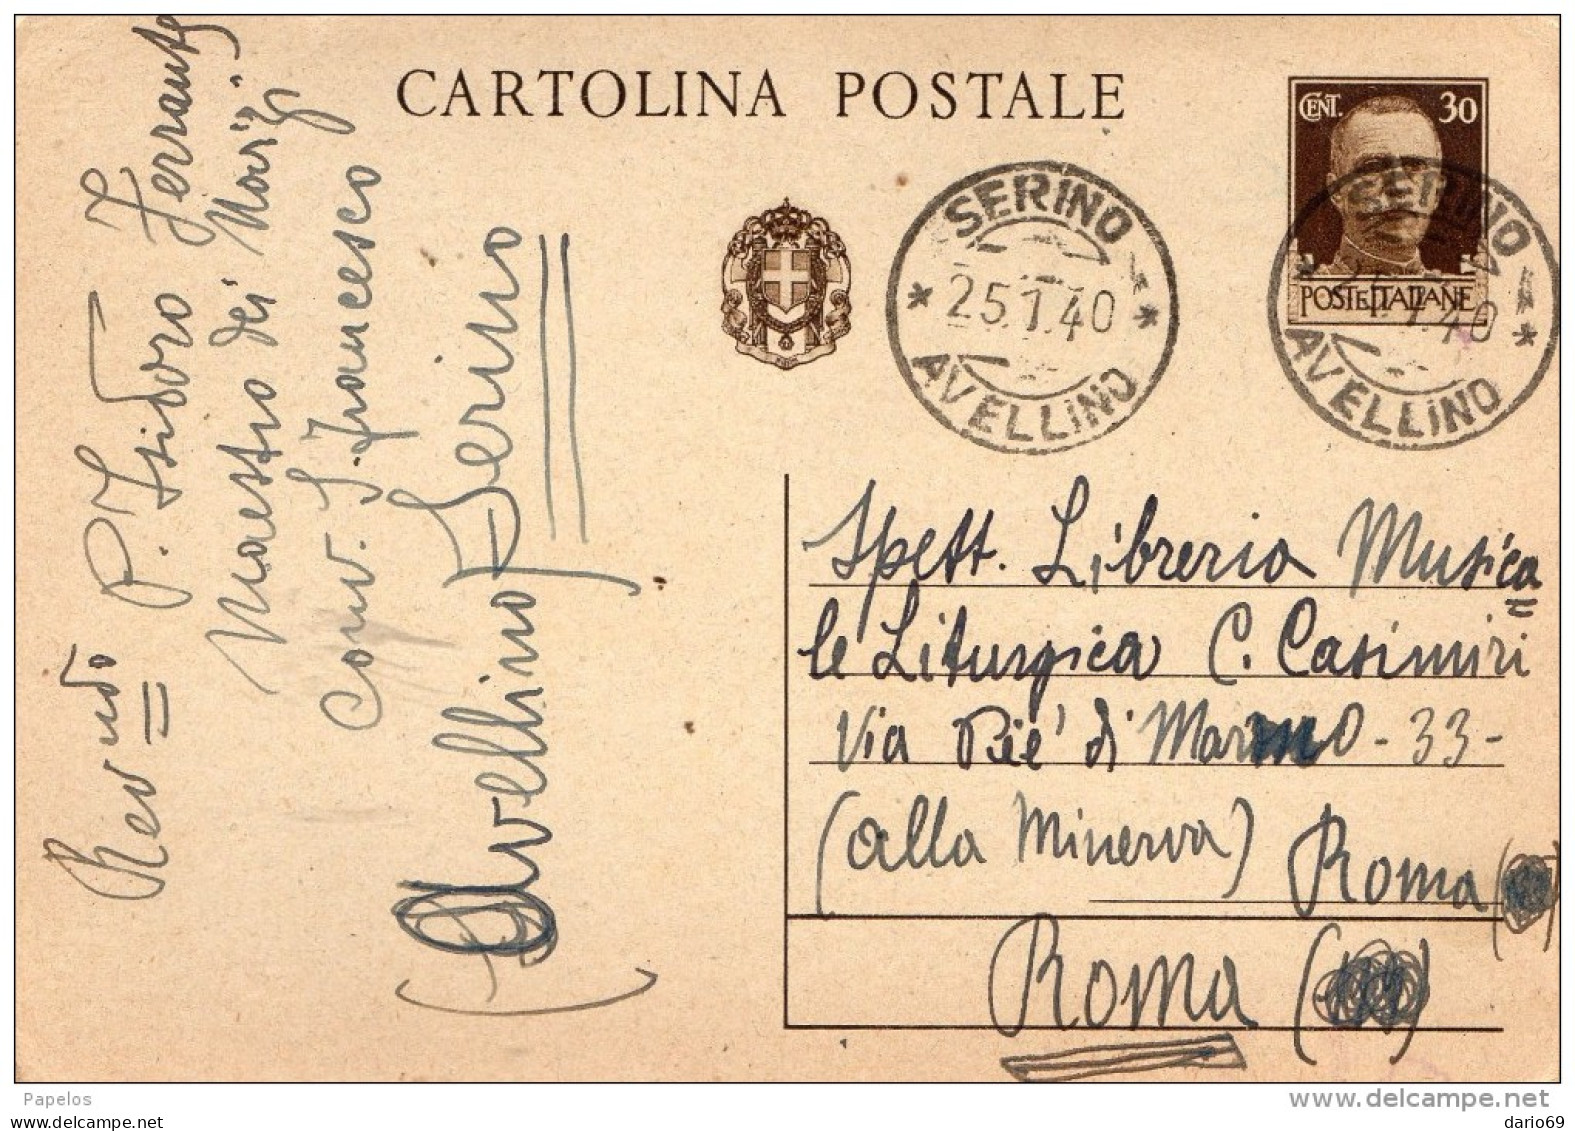 CARTOLINA POSTALE
CENT. 30
POSTE ITALIANE
SERINO
25.1.40
AVELLINO
SERINO
25.1.40
AVELLINO
Revdo P. Isidoro Ferrante
Maestro dei Novizi
Conv. S. Francesco
Serino
(Avellino)
Spett. Libreria Musica
le Liturgica C. Casimiri
Via Piè di Marmo - 33 -
(alla Minerva) Roma
Roma
Papelos
www.delcampe.net
dario69